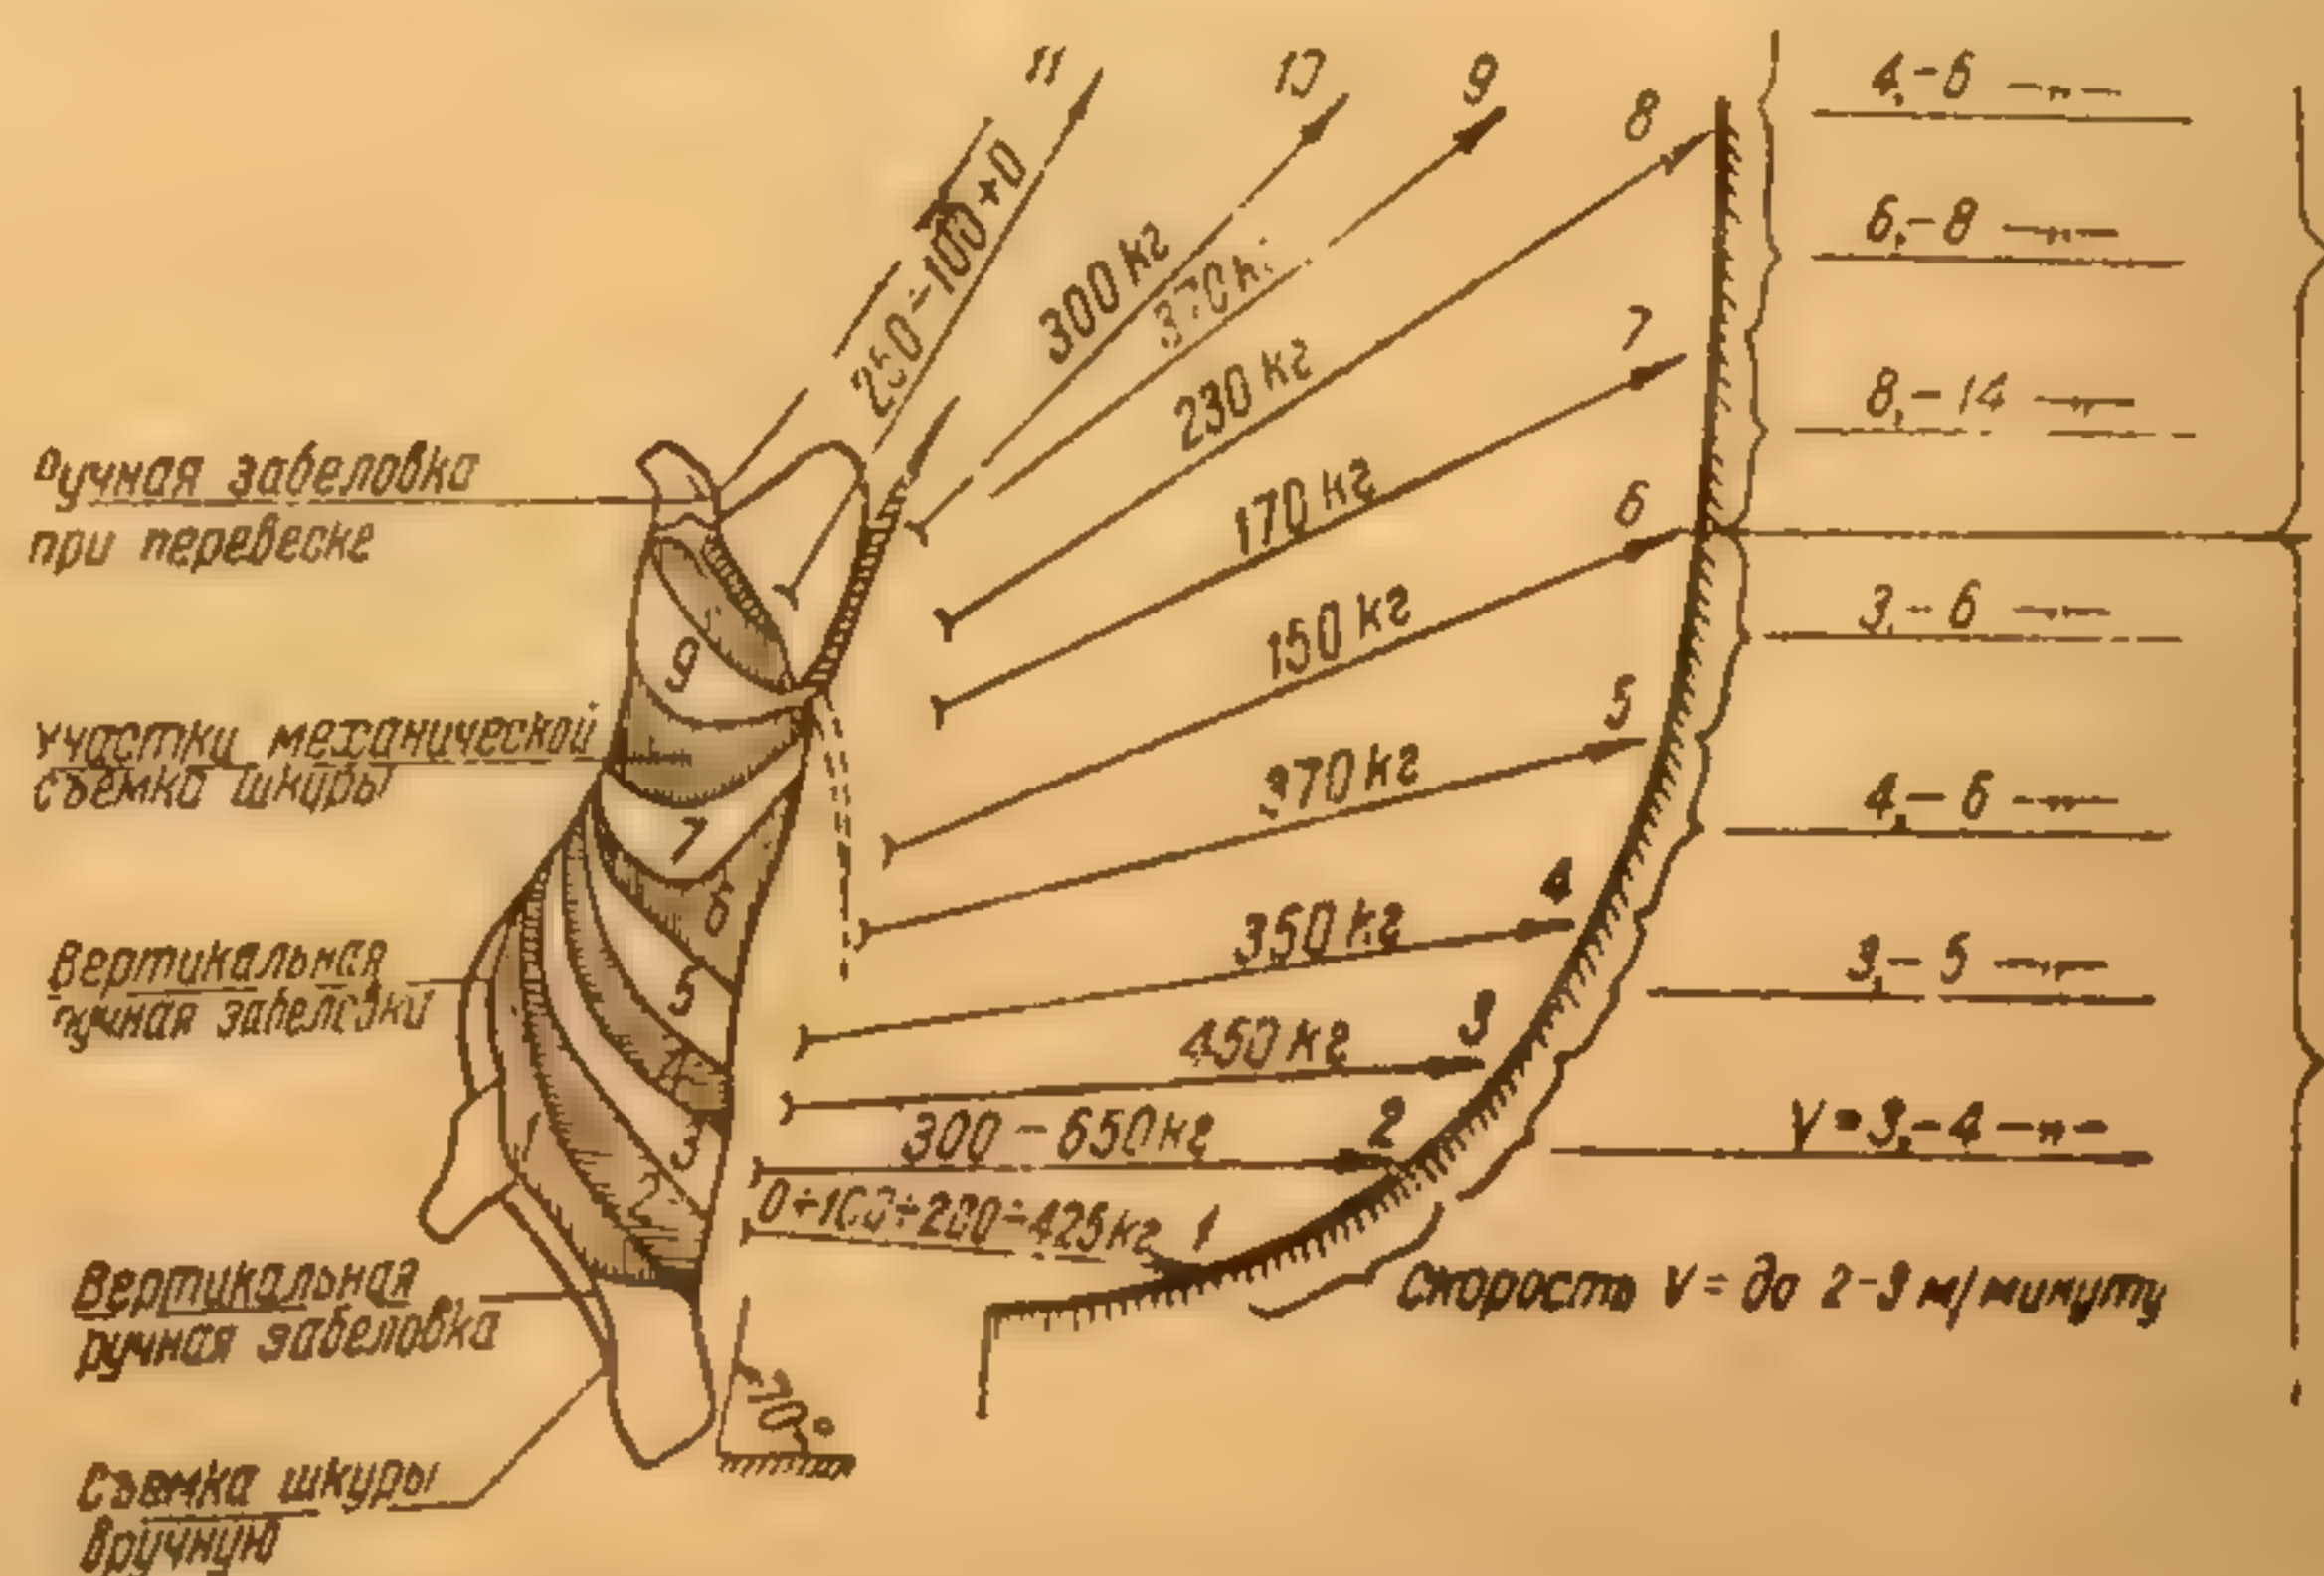 Ручная забеловка
при перевеске
Участки механической
съемка шкуры
Вертикальная
ручная забеловки
Вертикальная
ручная забеловка
Съемка шкуры
вручную
11
10
9
8
7
6
5
4
3
2
1
300 кг
370 кг
230 кг
170 кг
150 кг
370 кг
350 кг
450 кг
300 - 650 кг
0÷100÷200÷425 кг
9
7
6
5
4
3
2
1
70°
4,-6 —"—
6,-8 —"—
8,-14 —"—
3,-6 —"—
4,-6 —"—
3,-5 —"—
V = 3,-4 —"—
Скорость V = до 2-3 м/минуту